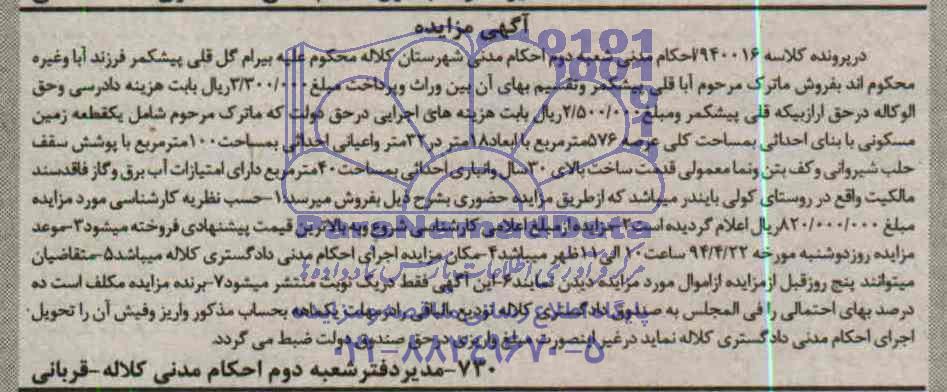 آگهی مزایده
درپرونده کلاسه ۹۴۰۰۱۶/احکام مدنی شعبه دوم احکام مدنی شهرستان کلاله محکوم علیه بیرام گل قلی پیشکمر فرزند آبا وغیره
محکوم اند بفروش ماترک مرحوم آبا قلی پیشکمر وتقسیم بهای آن بین وراث وپرداخت مبلغ۳/۳۰۰/۰۰۰ریال بابت هزینه دادرسی وحق
الوکاله درحق ارازبیکه قلی پیشکمر ومبلغ۲/۵۰۰/۰۰۰ریال بابت هزینه های اجرایی درحق دولت که ماترک مرحوم شامل یکقطعه زمین
مسکونی با بنای احداثی بمساحت کلی عرصه ۵۷۶مترمربع باابعاد۱۸متر در۳۲متر واعیانی احداثی بمساحت۱۰۰مترمربع با پوشش سقف
حلب شیروانی وکف بتن ونما معمولی قدمت ساخت بالای ۳۰سال وانباری احداثی بمساحت۴۰مترمربع دارای امتیازات آب برق وگاز فاقدسند
مالکیت واقع در روستای کولی بایندر میباشد که ازطریق مزایده حضوری بشرح ذیل بفروش میرسد۱-حسب نظریه کارشناسی مورد مزایده
مبلغ ۸۲۰/۰۰۰/۰۰۰ریال اعلام گردیده است۲-مزایده ازمبلغ اعلامی کارشناسی شروع وبه بالاترین قیمت پیشنهادی فروخته میشود۳-موعد
مزایده روزدوشنبه مورخه ۹۴/۴/۲۲ ساعت۱۰الی۱۱ظهر میباشد۴-مکان مزایده اجرای احکام مدنی دادگستری کلاله میباشد۵-متقاضیان
میتوانند پنج روزقبل ازمزایده ازاموال مورد مزایده دیدن نمایند۶-این آگهی فقط دریک نوبت منتشر میشود۷-برنده مزایده مکلف است ده
درصد بهای احتمالی را فی المجلس به صندوق دادگستری کلاله تودیع مالباقی رادرمهلت یکماهه بحساب مذکور واریز وفیش آن را تحویل
اجرای احکام مدنی دادگستری کلاله نماید درغیر اینصورت مبلغ واریزی درحق صندوق دولت ضبط می گردد.
۷۳۰-مدیردفترشعبه دوم احکام مدنی کلاله-قربانی
ParsNamadData
مرکز فرآوری اطلاعات پارس نماد داده ها
۰۲۱-۸۸۳۴۹۶۷۰-۵